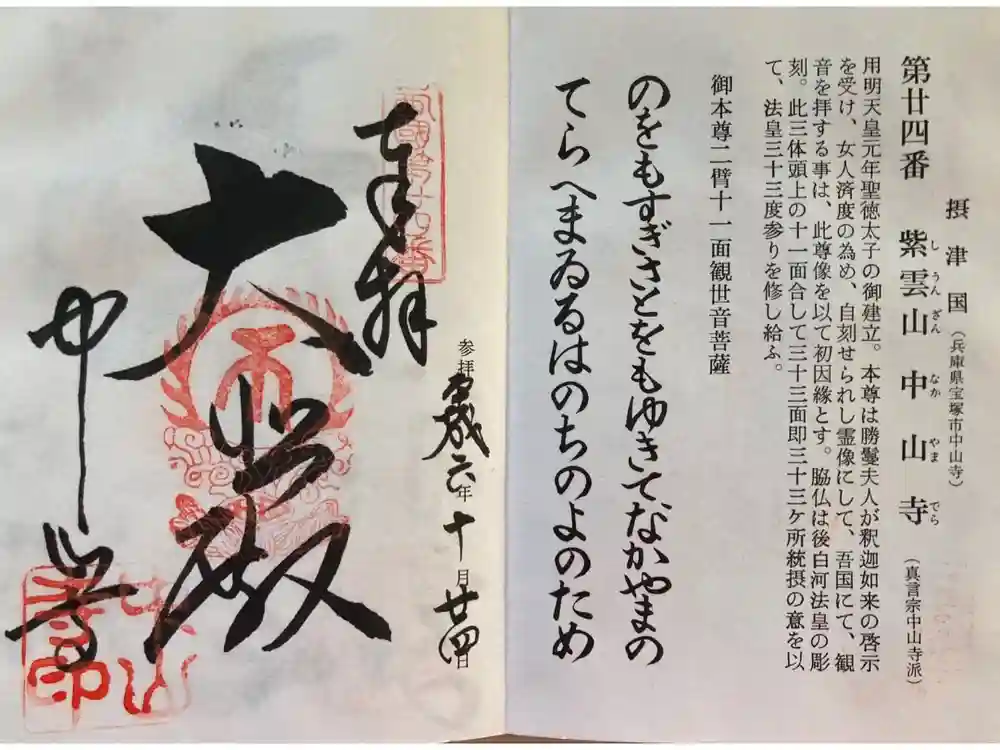 摂津国（兵庫県宝塚市中山寺）
第廿四番　紫雲山中山寺（真言宗中山寺派）
しうんざんなかやまでら
用明天皇元年聖徳太子の御建立。本尊は勝鬘夫人が釈迦如来の啓示
を受け、女人済度の為め、自刻せられし霊像にして、吾国にて、観
音を拝する事は、此尊像を以て初因縁とす。脇仏は後白河法皇の彫
刻。此三体頭上の十一面合して三十三面即三十三ケ所統摂の意を以
て、法皇三十三度参りを修し給ふ。
御本尊二臂十一面観世音菩薩
のをもすぎさとをもゆきてなかやまの
てらへまゐるはのちのよのため
参拝 令和六年十月廿四日
奉拝
大悲殿
中山寺